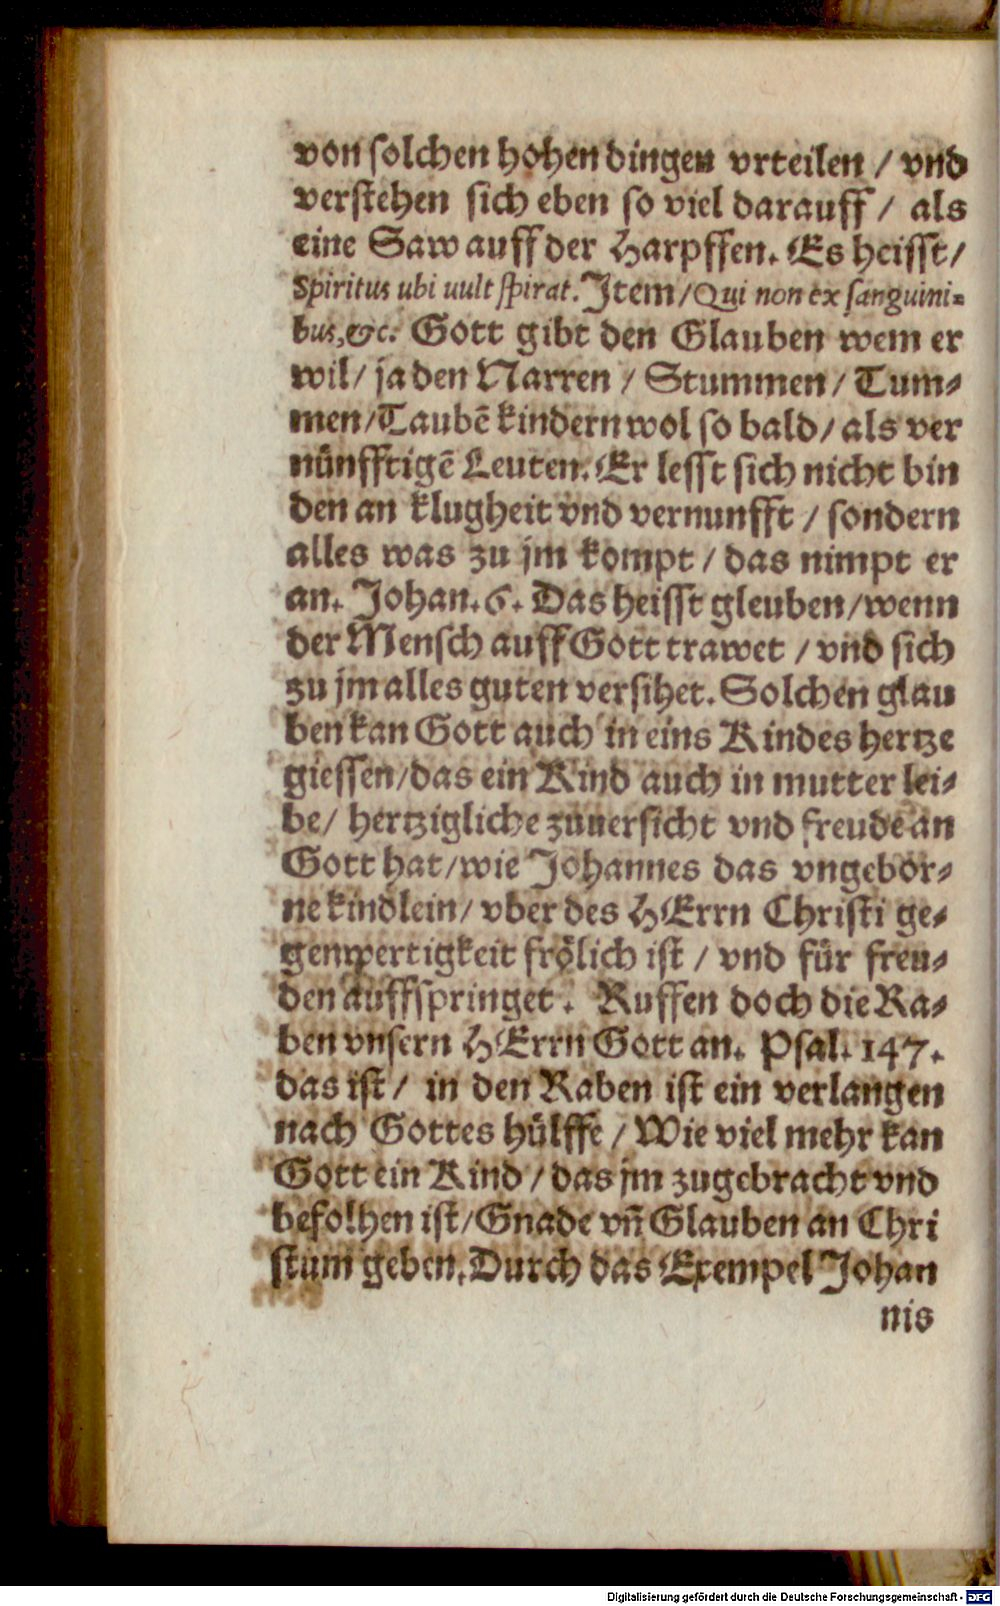 von solchen hohen dingen vrteilen / vnd
verstehen sich eben so viel darauff / als
eine Saw auff der Harpffen. Es heisst /
Spiritus ubi uult spirat. Item / Qui non ex sanguini⸗
bus, &c. Gott gibt den Glauben wem er
wil / ja den Narren / Stummen / Tum⸗
men / Taubē kindern wol so bald / als ver
nünfftigē Leuten. Er lesst sich nicht bin
den an klugheit vnd vernunfft / sondern
alles was zu jm kompt / das nimpt er
an. Johan. 6. Das heisst gleuben / wenn
der Mensch auff Gott trawet / vnd sich
zu jm alles guten versihet. Solchen glau
ben kan Gott auch in eins Kindes hertze
giessen / das ein Kind auch in mutter lei⸗
be / hertzigliche zuuersicht vnd freude an
Gott hat / wie Johannes das vngebor⸗
ne kindlein / vber des HErrn Christi ge⸗
genwertigkeit frölich ist / vnd für freu⸗
den auffspringet. Ruffen doch die Ra⸗
ben vnsern HErrn Gott an. Psal. 147.
das ist / in den Raben ist ein verlangen
nach Gottes hülffe / Wie viel mehr kan
Gott ein Kind / das jm zugebracht vnd
befolhen ist / Gnade vn̄ Glauben an Chri
stum geben. Durch das Exempel Johan
nis
Digitalisierung gefördert durch die Deutsche Forschungsgemeinschaft - DFG